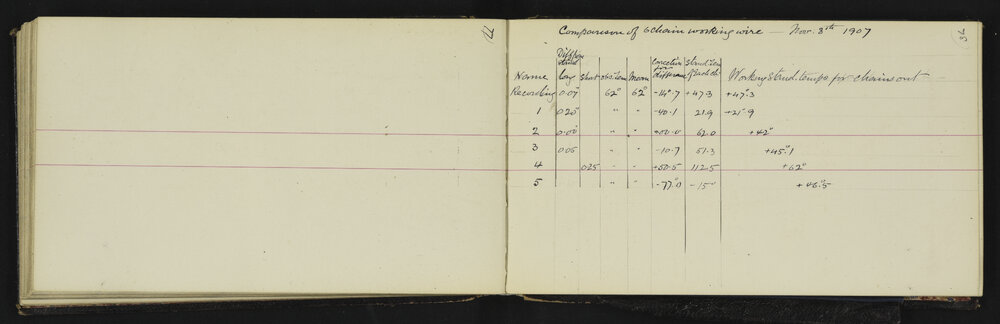 Comparison of 6 chain working wire — Nov. 8th 1907
Name long Short obs. Tem Mean Correction for difference Stand. Tem of Each ch. Working Stand. temps for chains out
Recording 0.07 62° 62° -14°.7 +47.3 +47°.3
1 0.20 " " -40.1 21.9 +21°.9
2 0.00 " " +00.0 62.0 +42°
3 0.05 " " -10.7 51.3 +45°.1
4 .025 " " +50.5 112.5 +62°
5 " " -77°.0 -15° +46°.5